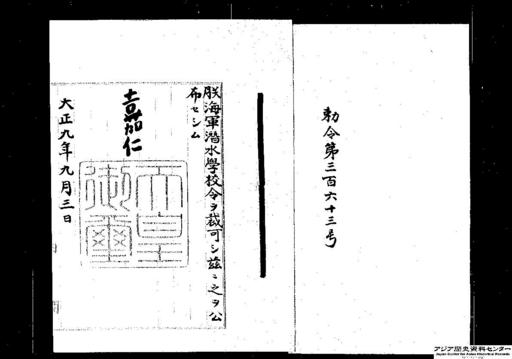 勅令第三百六十三号
朕海軍潜水學校令ヲ裁可シ茲ニ之ヲ公
布セシム
嘉仁
天皇
御璽
大正九年九月三日
アジア歴史資料センター
Japan Center for Asian Historical Records